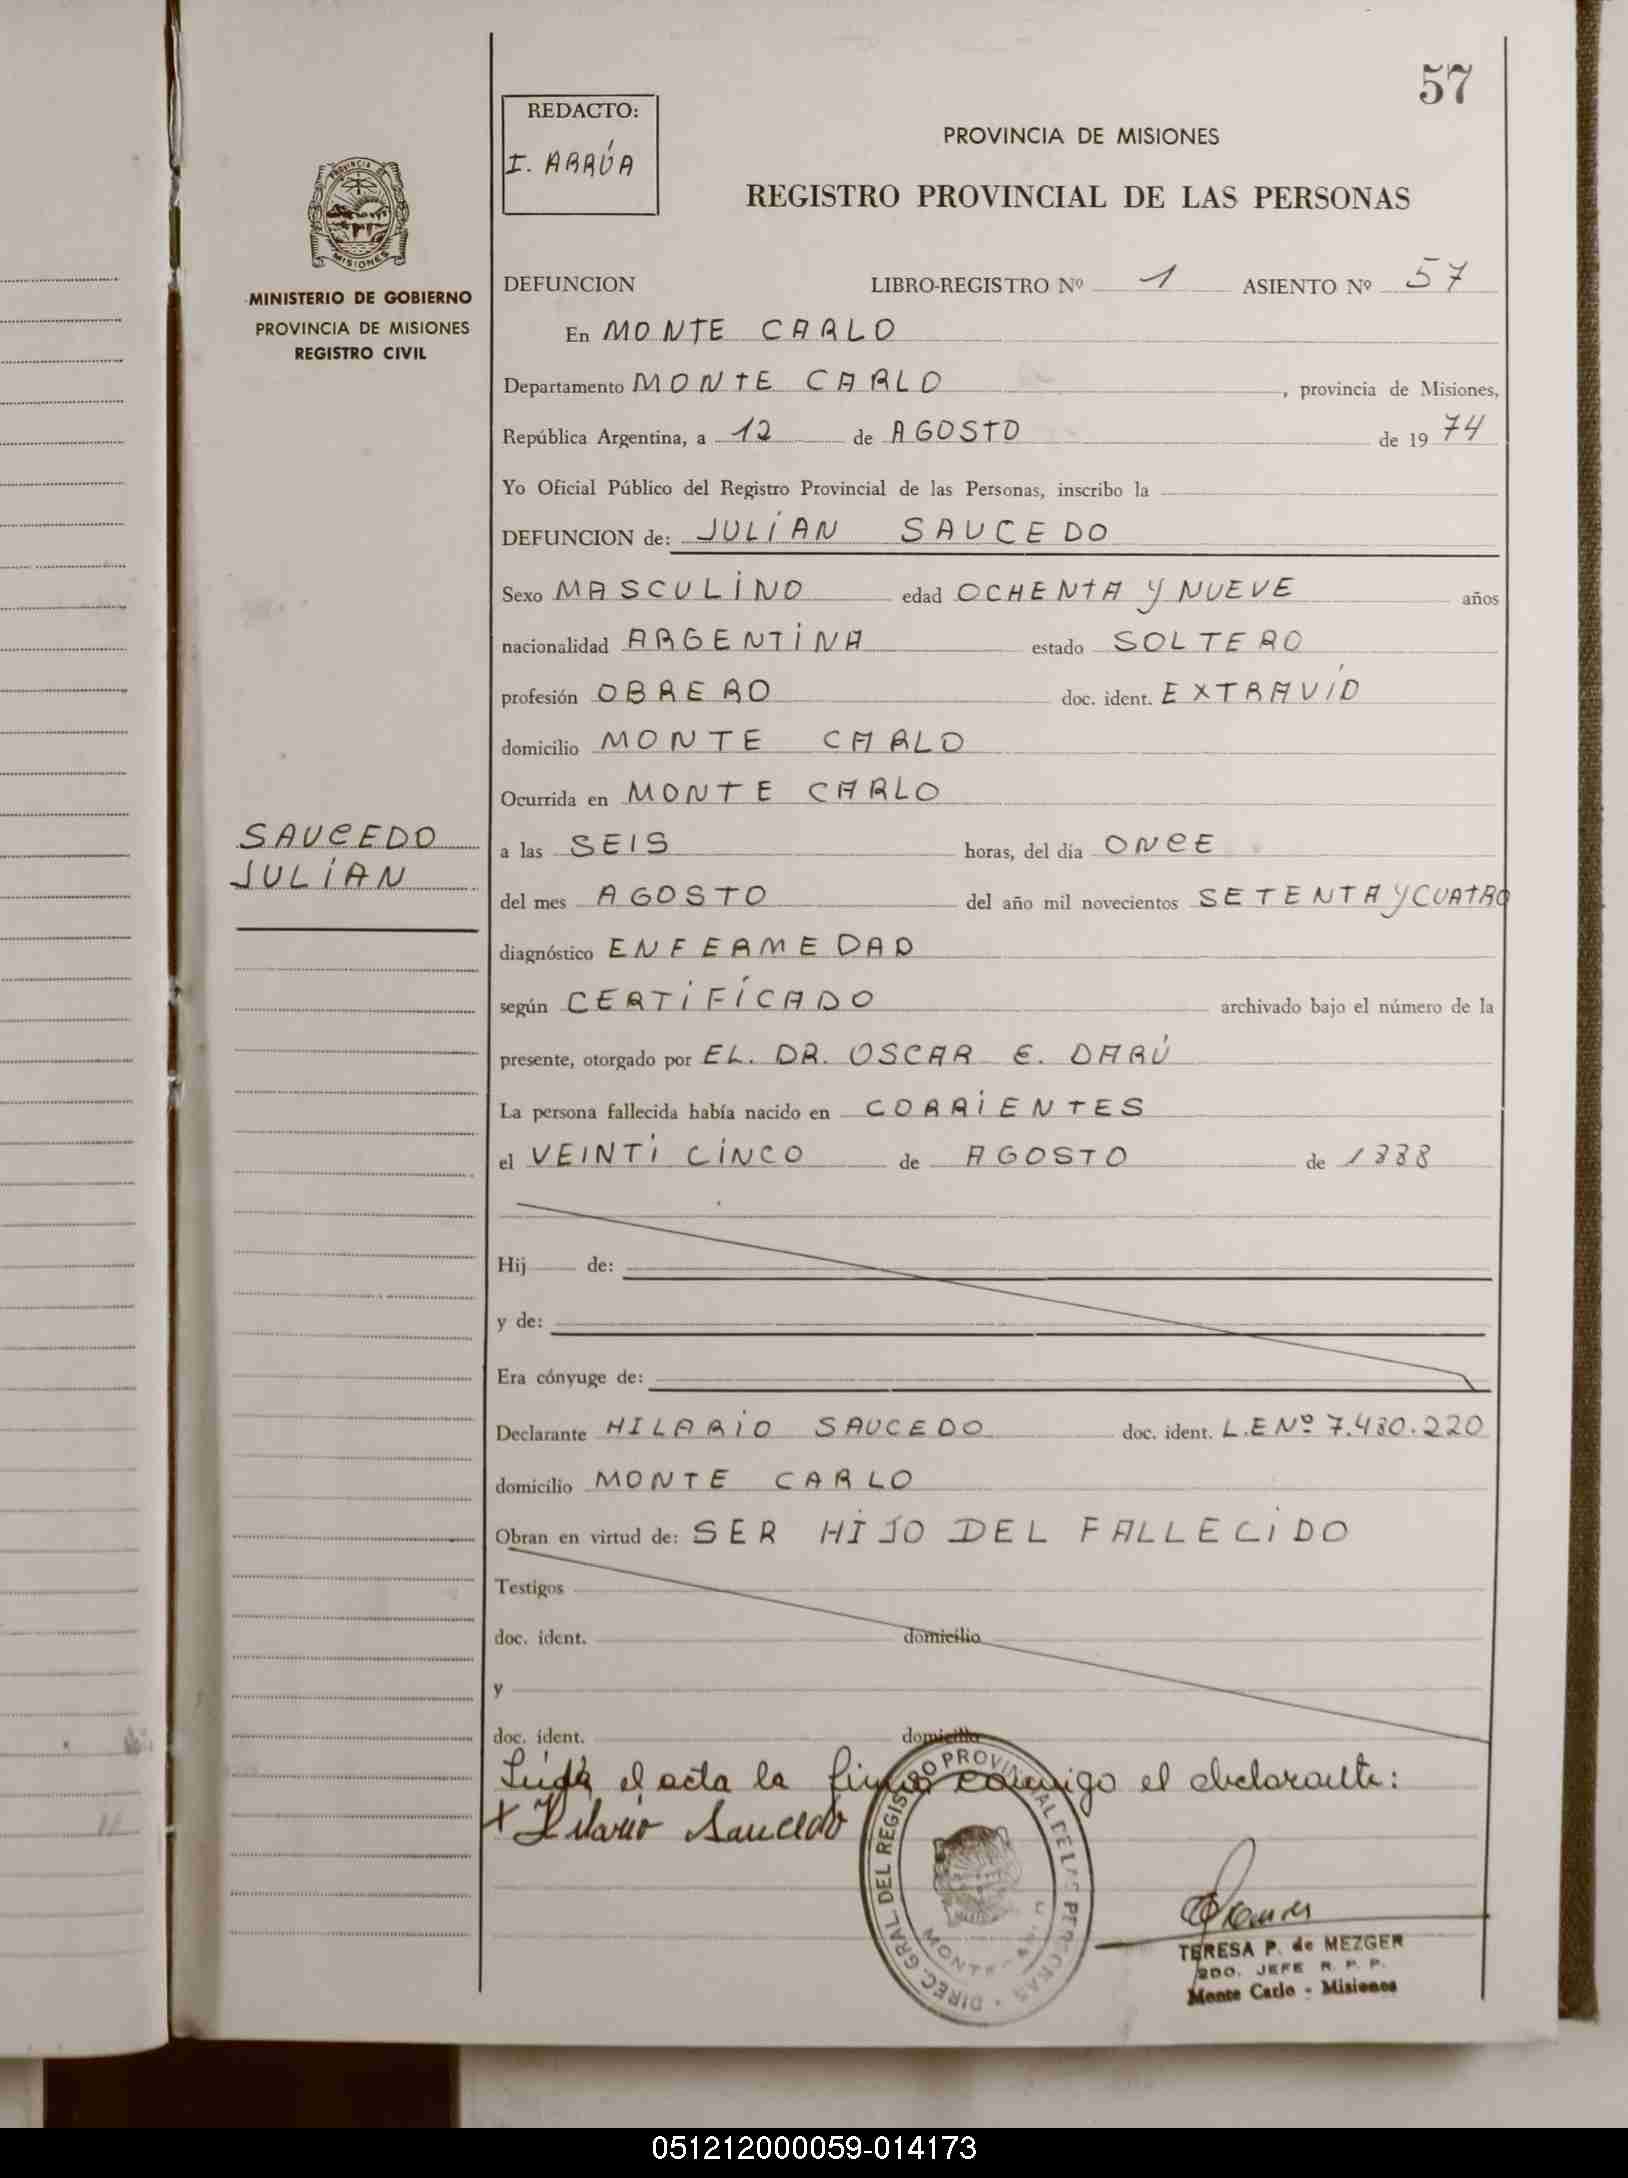 57
REDACTO:
I. ARRÚA
PROVINCIA DE MISIONES
REGISTRO PROVINCIAL DE LAS PERSONAS
PROVINCIA DE
MISIONES
MINISTERIO DE GOBIERNO
PROVINCIA DE MISIONES
REGISTRO CIVIL
DEFUNCION LIBRO-REGISTRO Nº 1 ASIENTO Nº 57
En MONTE CARLO
Departamento MONTE CARLO, provincia de Misiones,
República Argentina, a 12 de AGOSTO de 1974
Yo Oficial Público del Registro Provincial de las Personas, inscribo la
DEFUNCION de: JULÍAN SAUCEDO
Sexo MASCULINO edad OCHENTA Y NUEVE años
nacionalidad ARGENTINA estado SOLTERO
profesión OBRERO doc. ident. EXTRAVIÓ
domicilio MONTE CARLO
Ocurrida en MONTE CARLO
SAUCEDO
JULIAN
a las SEIS horas, del día ONCE
del mes AGOSTO del año mil novecientos SETENTA Y CUATRO
diagnóstico ENFERMEDAD
según CERTIFICADO archivado bajo el número de la
presente, otorgado por EL. DR. OSCAR E. DARÚ
La persona fallecida había nacido en CORRIENTES
el VEINTI CINCO de AGOSTO de 1888
Hij de:
y de:
Era cónyuge de:
Declarante HILARIO SAUCEDO doc. ident. L.E Nº 7.480.220
domicilio MONTE CARLO
Obran en virtud de: SER HIJO DEL FALLECIDO
Testigos
doc. ident. domicilio
y
doc. ident. domicilio
Leída el acta la firma conmigo el declarante:
+ Hilario Saucedo
DIREC. GRAL DEL REGISTRO PROVINCIAL DE LAS PERSONAS
MONTE CARLO
TERESA P. de MEZGER
2DO. JEFE R. P. P.
Monte Carlo - Misiones
051212000059-014173